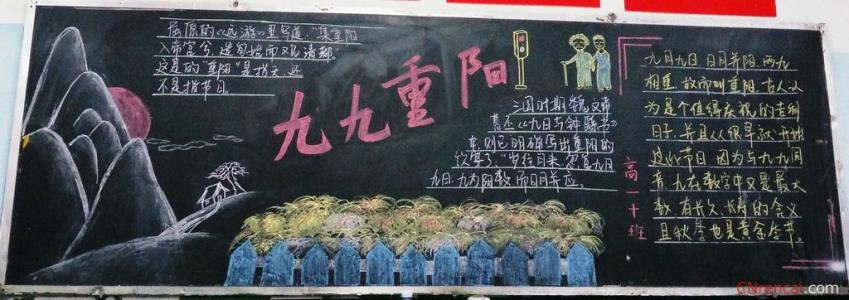 屈原的《远游》里写道:"集重阳
入帝宫兮,造旬始而观清都"
这里的"重阳"是指天,还
不是指节日。
九九重阳
三国时期魏文帝
曹丕《九日与钟繇书》
中,则已明确写出重阳的
饮宴了:"岁往月来,忽复九月
九日,九为阳数,而日月并应。
九月九日,日月并阳,两九
相重,故而叫重阳,古人认
为是个值得庆祝的吉利
日子,并且从很早就开始
过此节日,因为与九九同
音,九在数字中又是最大
数,有长久长寿的含义
且秋季也是黄金季节。
高一十班
CNrencai.com